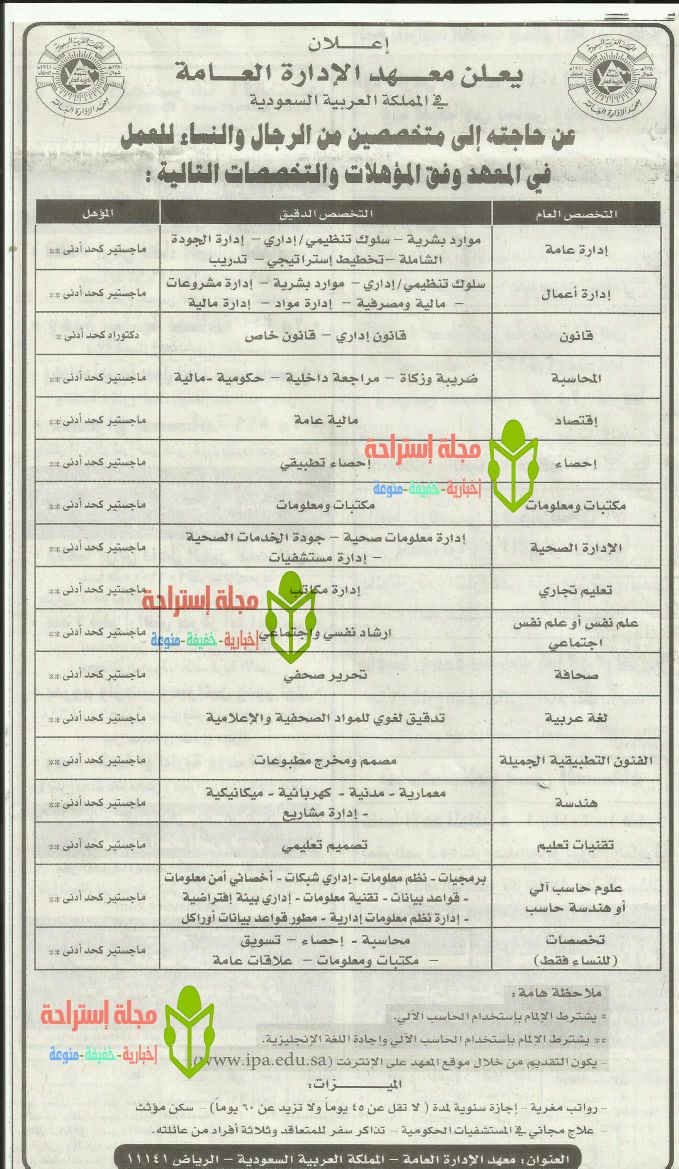 إعلان
يعلن معهد الإدارة العامة
في المملكة العربية السعودية
عن حاجته إلى متخصصين من الرجال والنساء للعمل
في المعهد وفق المؤهلات والتخصصات التالية :
التخصص العام التخصص الدقيق المؤهل
إدارة عامة موارد بشرية – سلوك تنظيمي/إداري – إدارة الجودة ماجستير كحد أدنى **
الشاملة – تخطيط إستراتيجي – تدريب
إدارة أعمال سلوك تنظيمي/إداري – موارد بشرية – إدارة مشروعات ماجستير كحد أدنى **
– مالية ومصرفية – إدارة مواد – إدارة مالية
قانون قانون إداري – قانون خاص دكتوراه كحد أدنى *
المحاسبة ضريبة وزكاة – مراجعة داخلية – حكومية -مالية ماجستير كحد أدنى **
إقتصاد مالية عامة ماجستير كحد أدنى **
مجلة إستراحة
إخبارية-خفيفة-منوعة
إحصاء إحصاء تطبيقي ماجستير كحد أدنى **
مكتبات ومعلومات مكتبات ومعلومات ماجستير كحد أدنى **
الإدارة الصحية إدارة معلومات صحية – جودة الخدمات الصحية ماجستير كحد أدنى **
– إدارة مستشفيات
تعليم تجاري إدارة مكاتب ماجستير كحد أدنى **
مجلة إستراحة
إخبارية-خفيفة-منوعة
علم نفس أو علم نفس ارشاد نفسي واجتماعي ماجستير كحد أدنى **
اجتماعي
صحافة تحرير صحفي ماجستير كحد أدنى **
لغة عربية تدقيق لغوي للمواد الصحفية والإعلامية ماجستير كحد أدنى **
الفنون التطبيقية الجميلة مصمم ومخرج مطبوعات ماجستير كحد أدنى **
هندسة معمارية - مدنية - كهربائية - ميكانيكية ماجستير كحد أدنى **
- إدارة مشاريع
تقنيات تعليم تصميم تعليمي ماجستير كحد أدنى **
علوم حاسب آلي برمجيات - نظم معلومات -إداري شبكات - أخصائي أمن معلومات ماجستير كحد أدنى **
أو هندسة حاسب - قواعد بيانات - تقنية معلومات - إداري بيئة إفتراضية
- إدارة نظم معلومات إدارية - مطور قواعد بيانات أوراكل
تخصصات محاسبة - إحصاء – تسويق ماجستير كحد أدنى **
(للنساء فقط) – مكتبات ومعلومات – علاقات عامة
مجلة إستراحة
إخبارية-خفيفة-منوعة
ملاحظة هامة :
* يشترط الإلمام بإستخدام الحاسب الآلي.
** يشترط الإلمام باستخدام الحاسب الآلي وإجادة اللغة الإنجليزية.
– يكون التقديم من خلال موقع المعهد على الانترنت (www.ipa.edu.sa).
الميـــزات :
– رواتب مغرية - إجازة سنوية لمدة ( لا تقل عن ٤٥ يوماً ولا تزيد عن ٦٠ يوماً) – سكن مؤثث
– علاج مجاني في المستشفيات الحكومية – تذاكر سفر للمتعاقد وثلاثة أفراد من عائلته.
العنوان : معهد الإدارة العامة – المملكة العربية السعودية – الرياض ١١١٤١